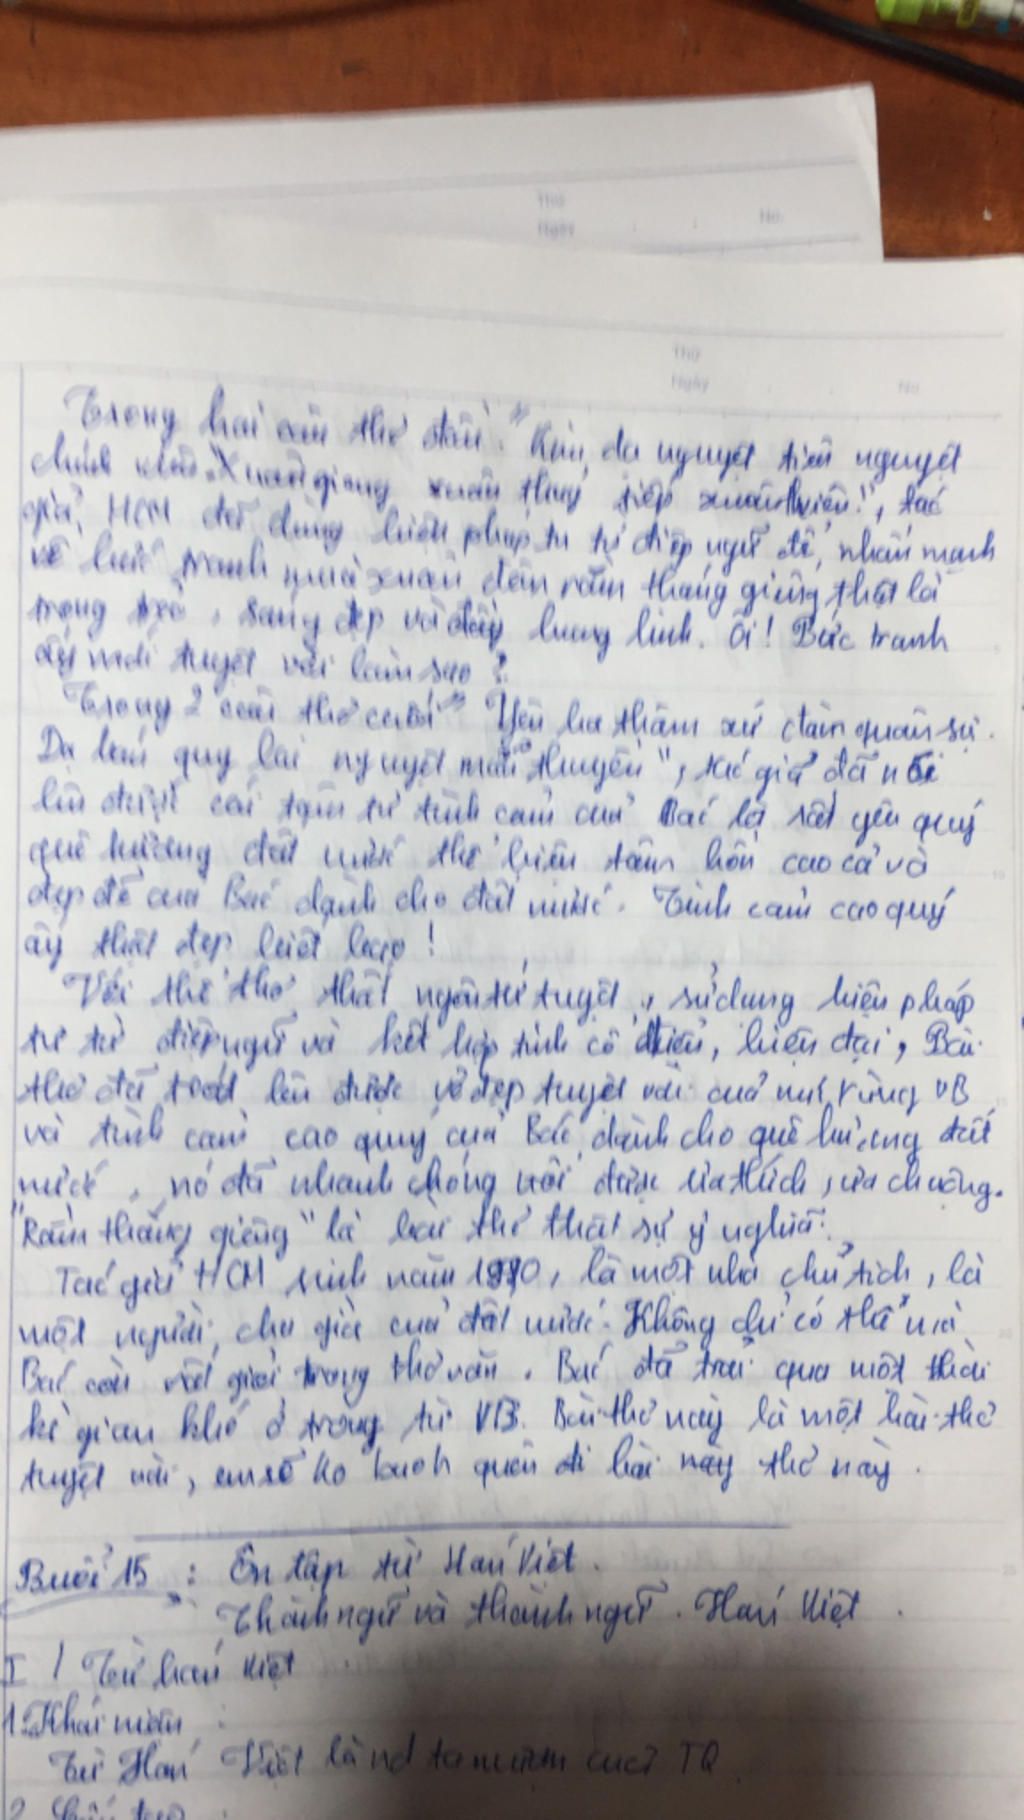 Thứ
Ngày
No.
Thứ
Ngày
No
Trong hai câu thơ đầu "Kim dạ nguyệt tiên nguyệt
chính viên Xuân giang xuân thuỷ tiếp xuân thiên!", tác
giả HCM đã dùng biện pháp tu từ điệp ngữ để nhấn mạnh
vẽ bức tranh mùa xuân đêm rằm tháng giêng thật là
trong trẻo, sáng đẹp và đầy lung linh. Ôi! Bức tranh
ấy mới tuyệt vời làm sao?
Trong 2 câu thơ cuối "Yên ba thâm xứ đàm quân sự.
Dạ bán quy lai nguyệt mãn thuyền", tác giả đã nói
lên được cái tâm tư tình cảm của Bác là rất yêu quý
quê hương đất nước thể hiện tâm hồn cao cả và
đẹp đẽ của Bác dành cho đất nước. Tình cảm cao quý
ấy thật đẹp biết bao!
Với thể thơ thất ngôn tứ tuyệt, sử dụng biện pháp
tu từ điệp ngữ và kết hợp tính cổ điển, hiện đại, Bài
thơ đã toát lên được vẻ đẹp tuyệt vời của núi rừng VB
và tình cảm cao quý của Bác dành cho quê hương đất
nước, nó đã nhanh chóng được ưa thích, ưa chuộng.
"Rằm tháng giêng" là bài thơ thật sự ý nghĩa.
Tác giả HCM sinh năm là một nhà chủ tịch, là
một người cha già của đất nước. Không chỉ có thế mà
Bác còn rất giỏi trong thơ văn. Bác đã trải qua một thời
kì gian khó ở trong từ VB. Bài thơ này là một bài thơ
tuyệt vời, em sẽ ko quên đi bài này thơ này.
Buổi 15 : Ôn tập từ Hán Việt.
Thành ngữ và thành ngữ. Hán Việt.
I / Từ hán việt
1. Khái niệm :
Từ Hán Việt là TQ
2